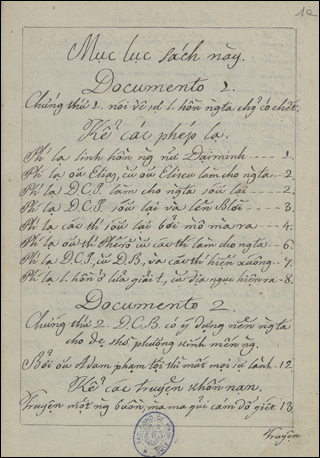 1a
Mục lục sách này.
Documento 1.
Chứng thứ 1. nói về sự l. hồn ngta chg có chết.
Kể các phép lạ.
Phl lạ linh hồn ng nữ Đạiminh --- 1.
Phl lạ ôu Elia, cù ôu Eliseo làm cho ngta -- 2.
Phl lạ D.C.J. làm cho ngta sốu lại --- 2.
Phl lạ D.C.J. sốu lại và lên Blời --- 3.
Phl lạ các thí sốu lại bởi mồ ma ra --- 4.
Phl lạ ôu thí Phêrô cù các thí làm cho ngta -- 6.
Phl lạ D.C.J, cù D.B, và các thí hiện xuống. - 7.
Phl lạ l. hồn ở lửa giải t, cù địa ngục hiện ra - 8.
Documento 2.
Chứng thứ 2. D.C.B. có ý dựng nên ngta
cho đc thờ phượng kính mến ng.
Bởi ôu Adam phạm tội thì mất mọi sự lành. 12.
Kể các truyện khốn nạn.
Truyện một ng buồn, mà ma quỉ cám dỗ giết 13.
Truyện